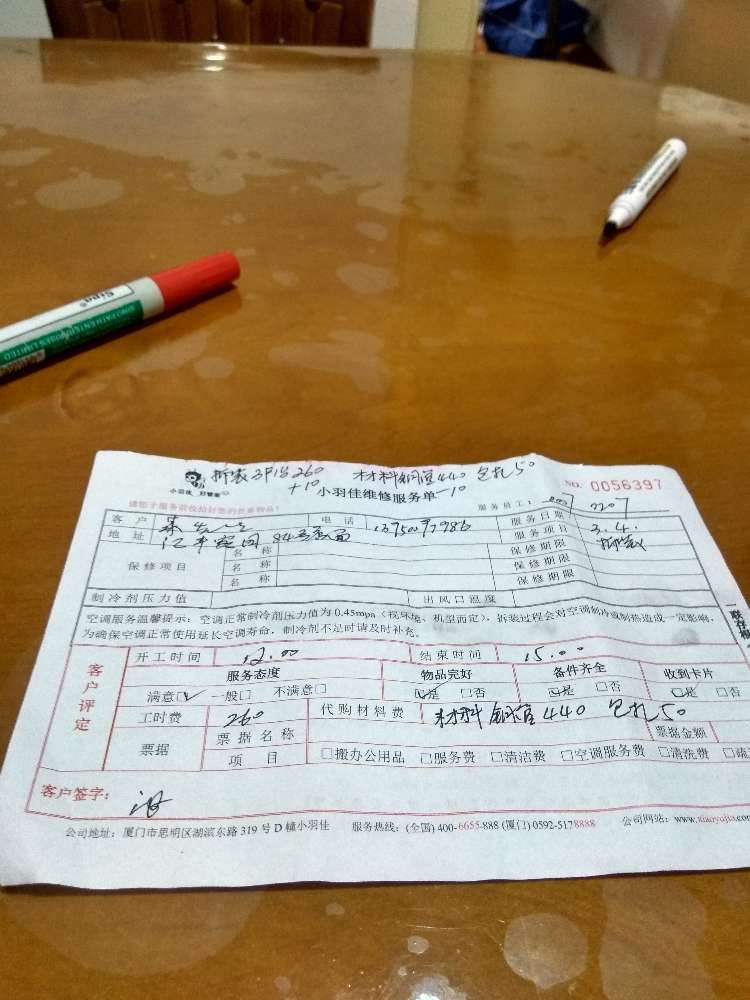 Sino®
SINO PATH ENTERPRISES LIMITED
拆装3P1台260 材料铜管440 包扎50
+10 -10
小羽佳 好管家
小羽佳维修服务单
NO. 0056397
请您于服务前收拾好您的贵重物品!
服务员工: 2207
客户 电话 服务日期 3.4.
地址 服务项目 拆装
保修项目 名称 保修期限
名称 保修期限
名称 保修期限
制冷剂压力值 出风口温度
空调服务温馨提示:空调正常制冷剂压力值为0.45mpa(视环境、机型而定),拆装过程会对空调制冷或制热造成一定影响,
为确保空调正常使用延长空调寿命,制冷剂不足时请及时补充。
客户评定
开工时间 12.00 结束时间 15.00
服务态度 物品完好 备件齐全 收到卡片
满意□ 一般□ 不满意□ □是 □否 □是 □否 □是 □否
工时费 260 代购材料费 材料铜管440 包扎50
票据 票据名称 票据金额
项目 □搬办公用品 □服务费 □清洁费 □空调服务费 □清洗费
客户签字:
公司地址:厦门市思明区湖滨东路319号D幢小羽佳 服务热线:(全国)400-6655-888 (厦门)0592-5178888 公司网站:www.xiaoyujia.com